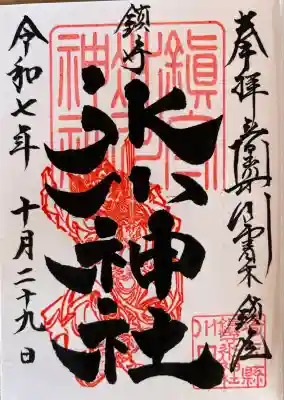 奉拝 青木鎮座
鎮守
氷川神社
令和七年 十月二十九日
鎮守
氷川
神社